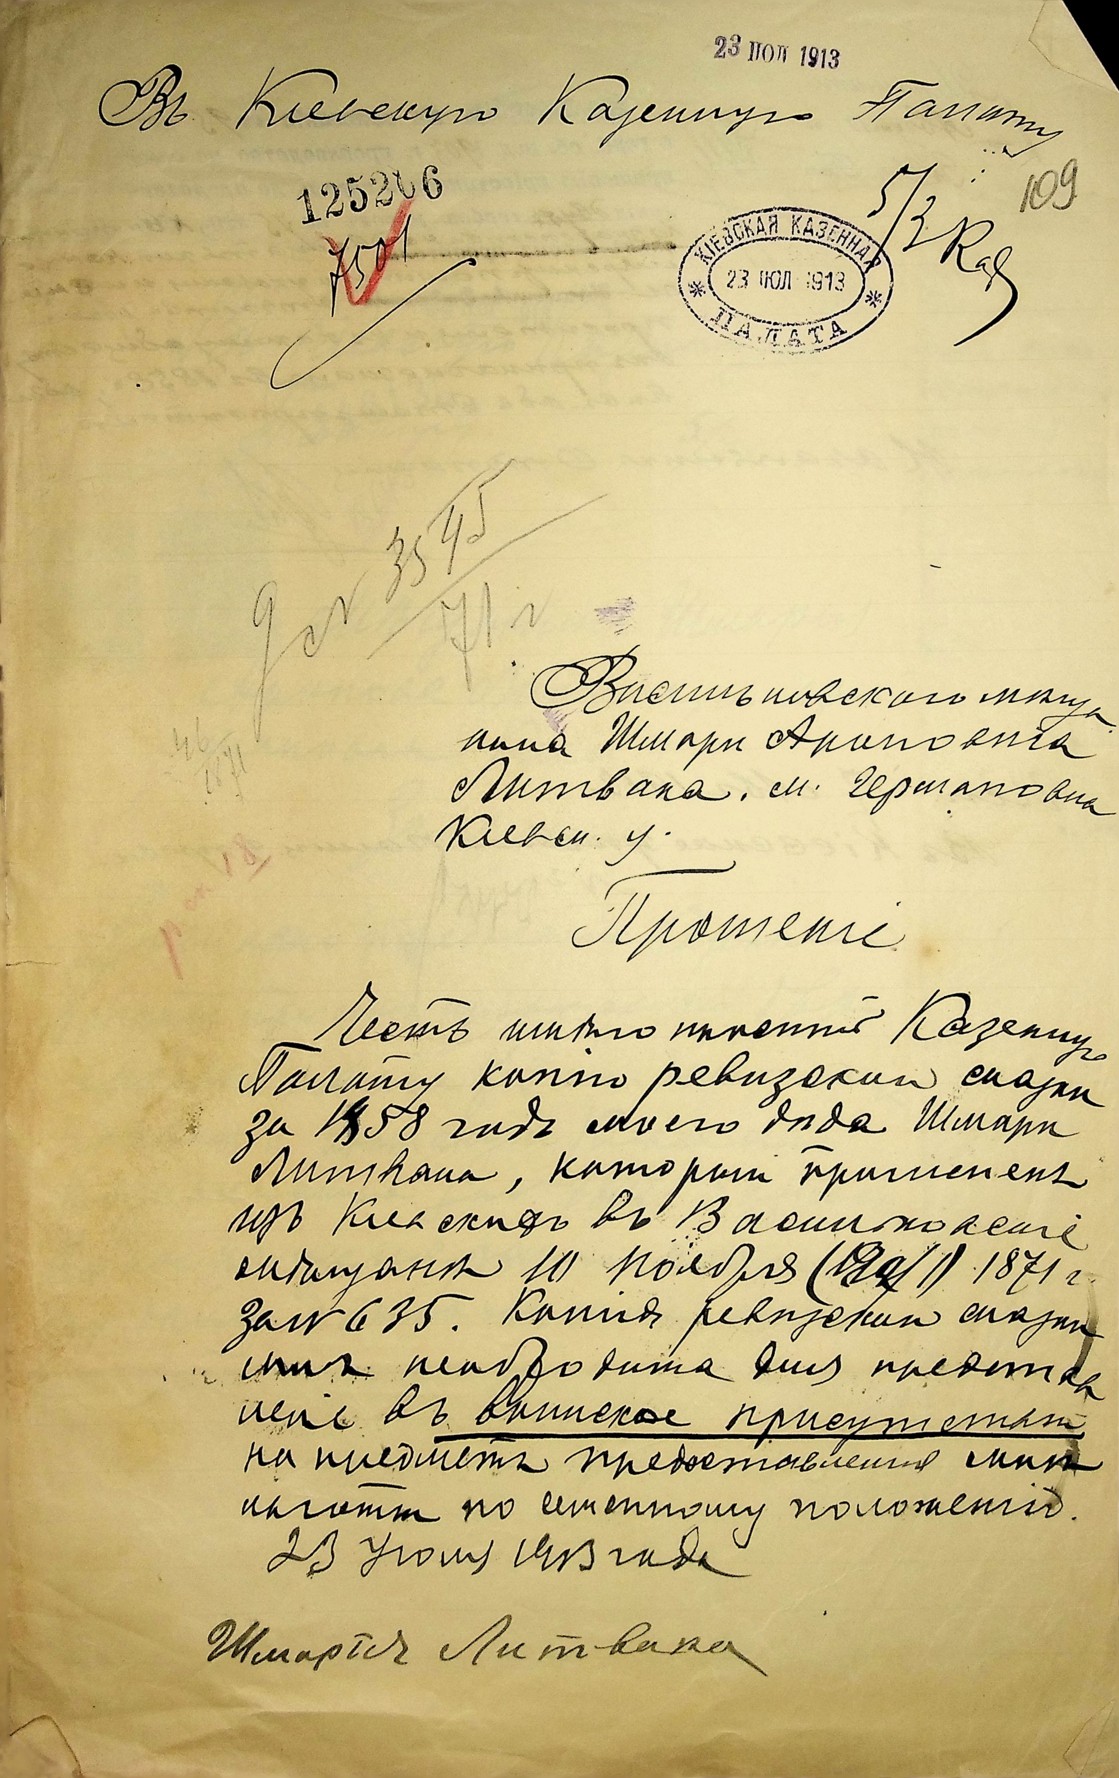 23 ІЮЛ 1913
Въ Кіевскую Казенную Палату
125206
7501
109
5/2 Каз
КІЕВСКАЯ КАЗЕННАЯ
23 ІЮЛ 1913
ПАЛАТА
3545
71 г
Васильковскаго мѣща
нина Шмари Ароновича
Литвака. м. Германовка
Кіевск. у.
Прошеніе
Честь имѣю просить Казенную
Палату копію ревизской сказки
за 1858 годъ моего дѣда Шмари
Литвака, который причисленъ
изъ Кіевскихъ въ Васильковскіе
мѣщане 10 Ноября 1871 г
за № 635. Копія ревизской сказки
мнѣ необходима для представ
ленія въ воинское присутствіе
на предметъ предоставленія мнѣ
льготы по семейному положенію.
23 Іюля 1913 года
Шмарія Литвака